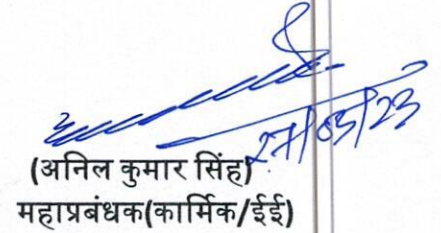 27/03/23
(अनिल कुमार सिंह)
महाप्रबंधक(कार्मिक/ईई)